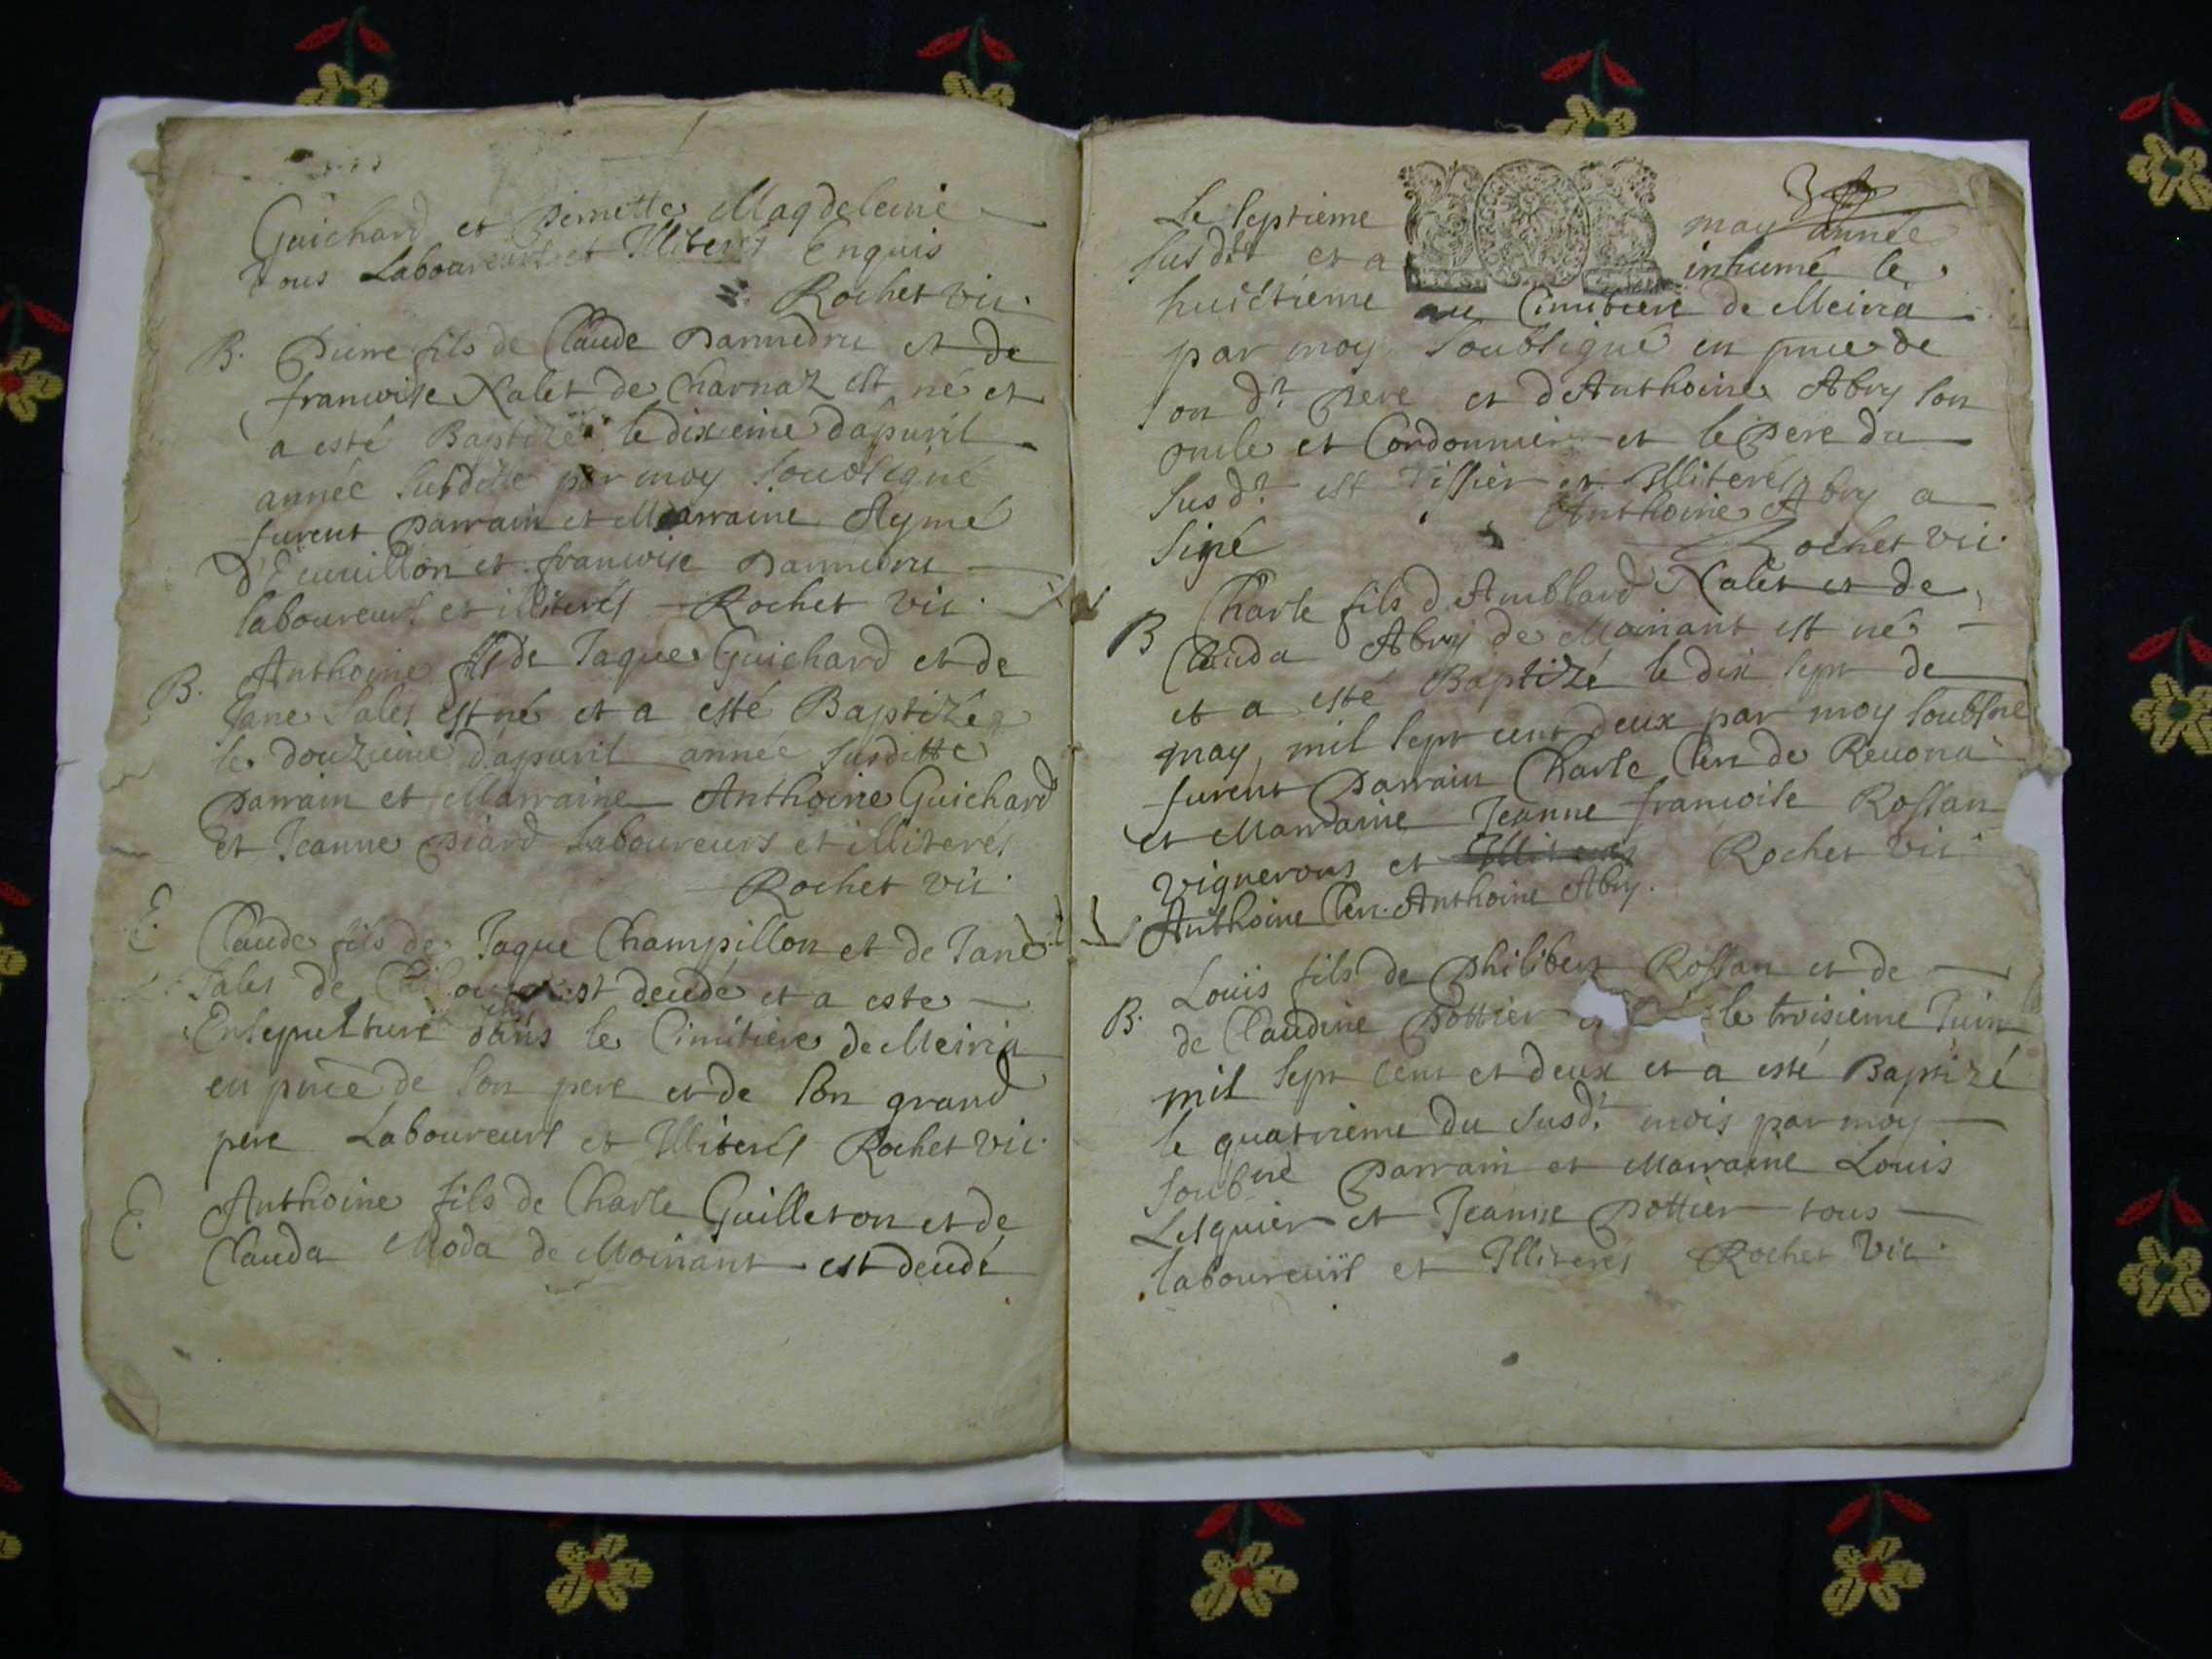 Guichard et Pernette Magdeleine
tous Laboureurs et Illiterés Enquis
Rochet vic.
B. Pierre fils de Claude Pannedru et de
francoise Nalet de Charnaz est né et
a esté Baptizé le dixeme d'apuril
année susditte par moy soubsigné
furent parrain et Marraine Aymé
D'Ecuuillon et francoise Pannedru
laboureurs et illiterés Rochet vic.
B. Anthoine fils de Jaque Guichard et de
Jane Sales est né et a esté Baptizé
le douzieme d'apuril année susditte
parrain et Marraine Anthoine Guichard
Et Jeanne Piard laboureurs et illiterés
Rochet vic.
E. Claude fils de Jaque Champillon et de Jane
Sales de est decedé et a este
Ensepulturé dans le Cimitiere de Meiria
en pnce de son pere et de son grand
pere Laboureurs et Illiterés Rochet vic.
E. Anthoine fils de Charle Guilleton et de
Clauda Moda de Moinant est decedé
Le septieme may année
susdt et a inhumé le
huictieme au Cimitiere de Meiria
par moy soubsigné en pnce de
son dt. pere et d'Anthoine Abry son
oncle et Cordonnier et le pere du
susdt. est Tissier et Illiterés
Anthoine Abry a
signé
Rochet vic.
B Charle fils d'Amblard Nalet et de
Clauda Abry de Moinant est né
et a esté Baptizé le dix sept de
may mil sept cent deux par moy soubsné
furent Parrain Charle Clerc de Reuona
et Marraine Jeanne francoise Rossan
vignerons et Illiterés Rochet vic
Anthoine Clerc. Anthoine Abry.
B. Louis fils de Philibert Rossan et de
de Claudine Pottier le troisieme Juin
mil sept cent et deux et a esté Baptizé
le quatrieme du susdt. mois par moy
soubné Parrain et Marraine Louis
Lesquier et Jeanne Pottier tous
laboureurs et Illiterés Rochet Vic.